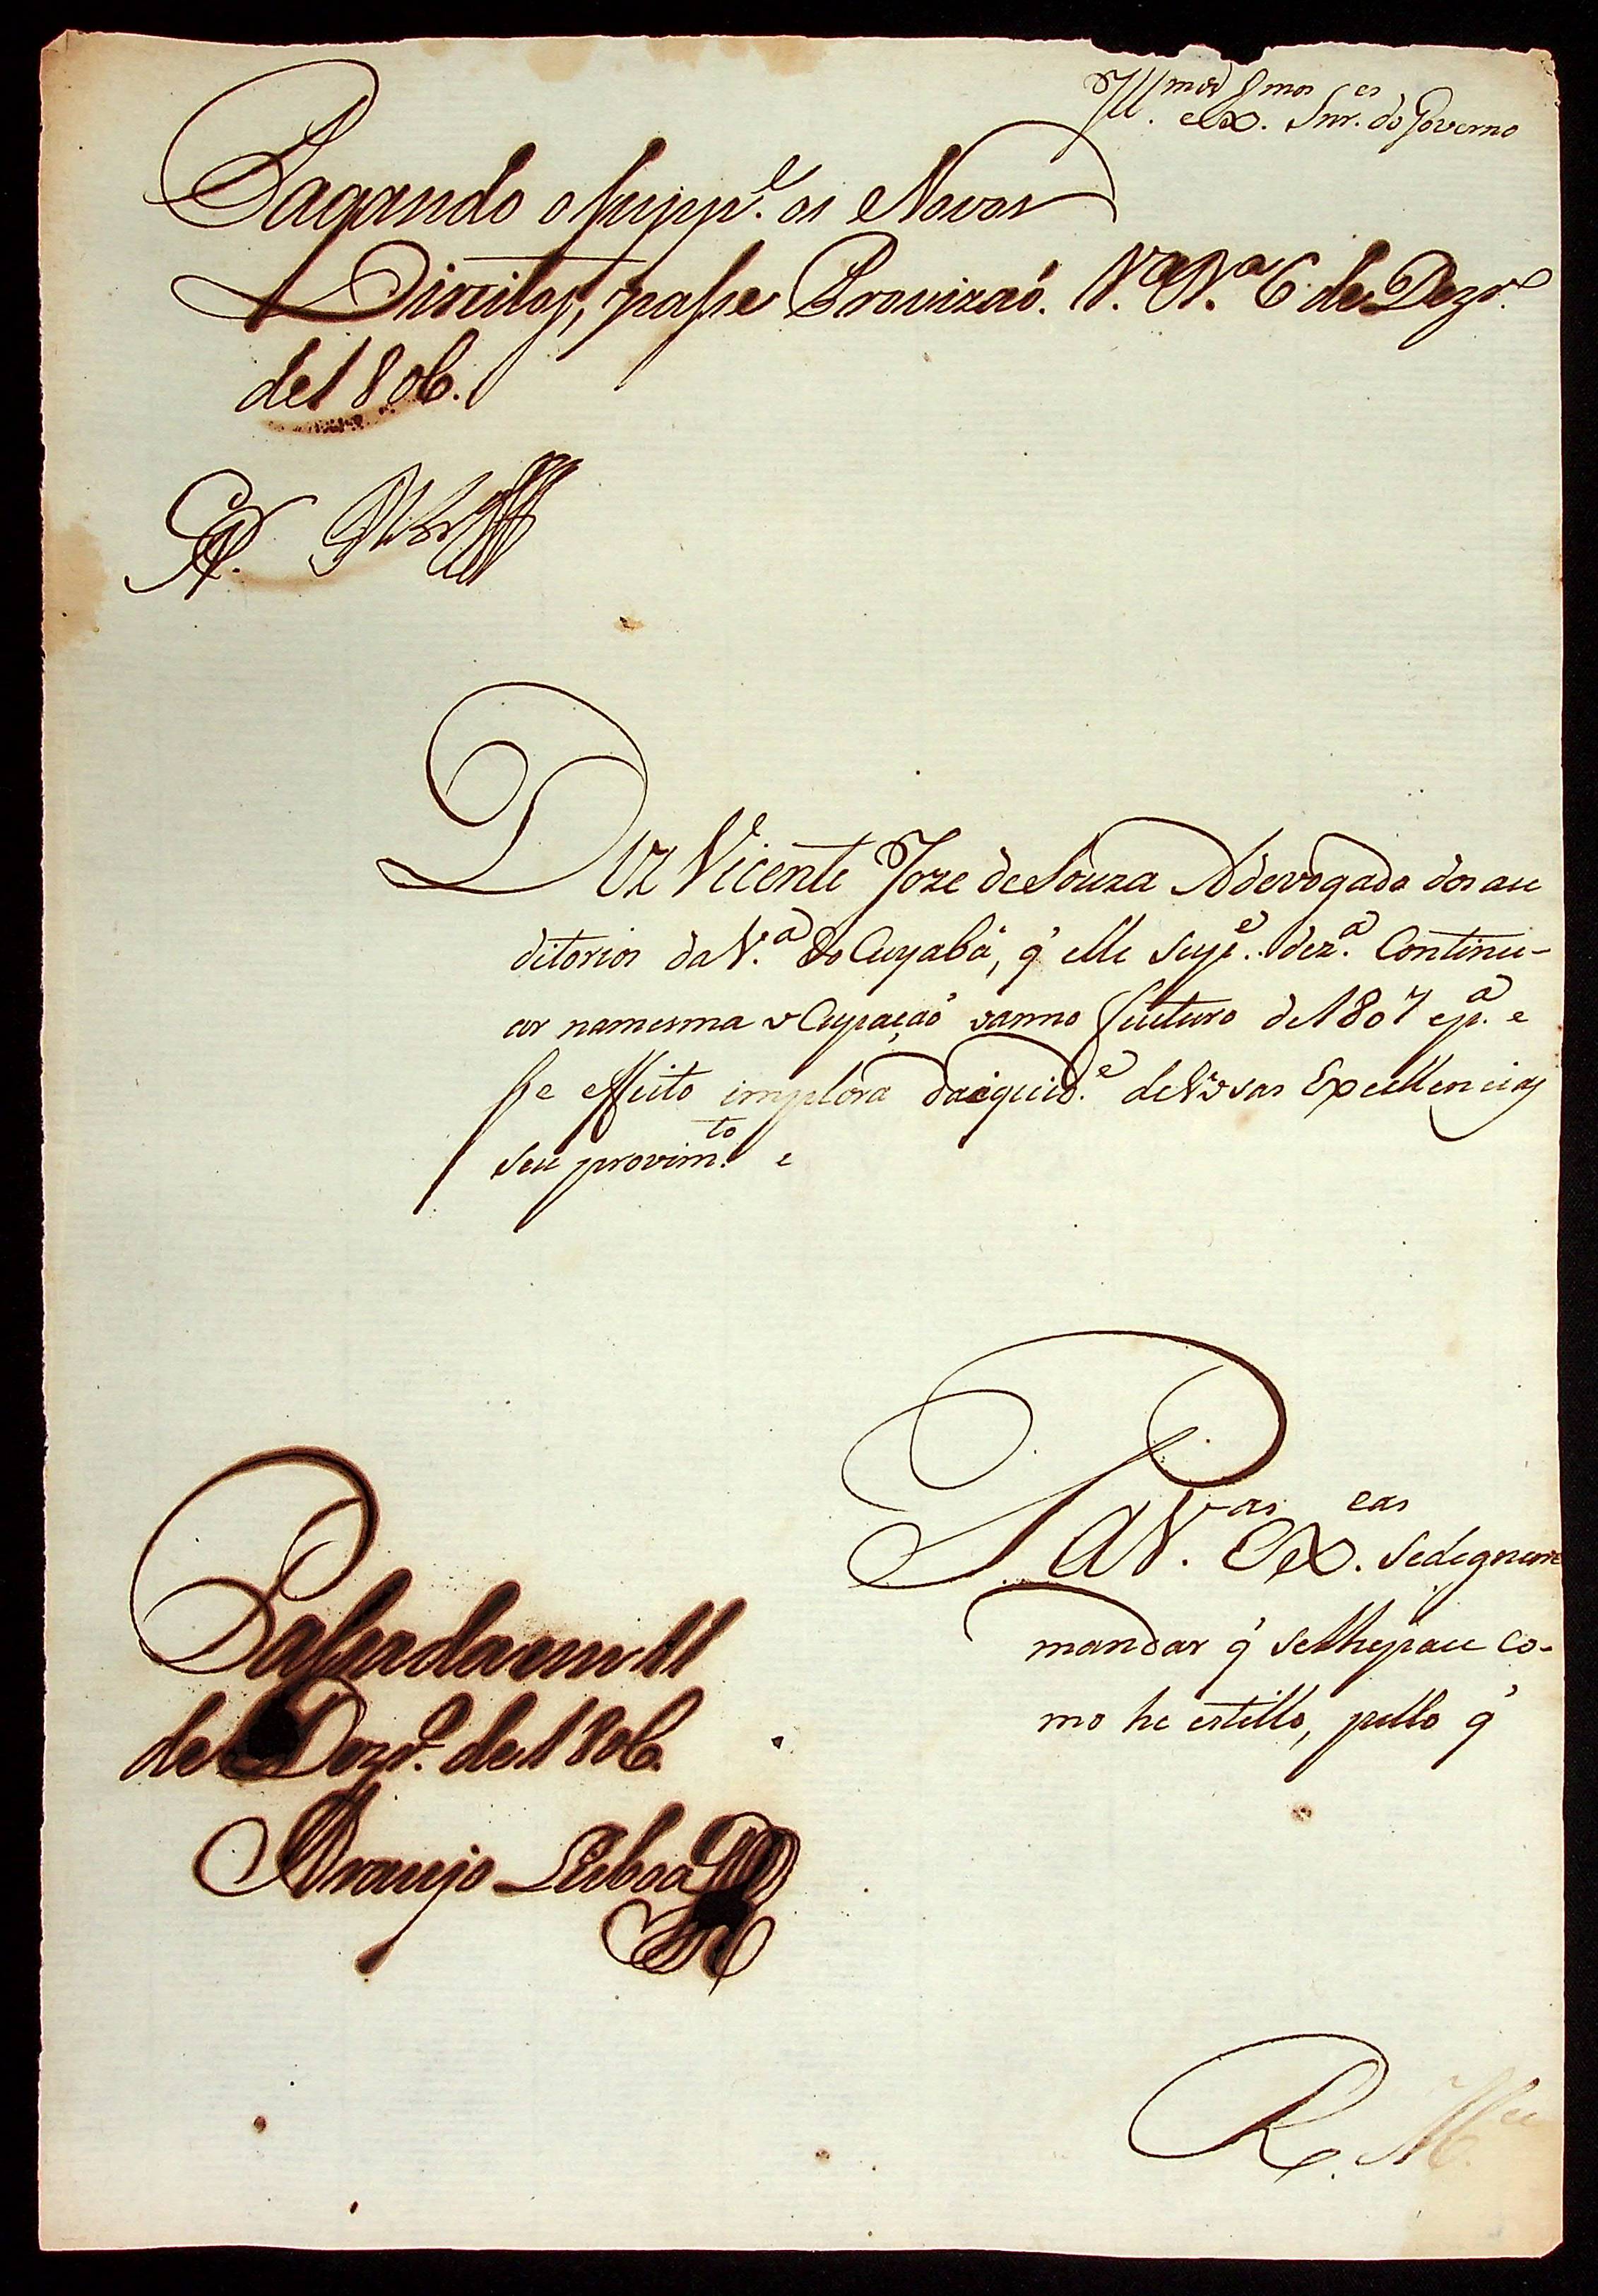 Ill.mos e Ex.mos Snr.es do Governo
Pagando o supp.e os Novos
Direitos, passe Provizaó. V.a N.a 6 de Dezr.o
de 1806.
Diz Vicente Joze de Souza Adevogado dos au
ditorios da V.a do Cuyabá, q' elle sup.e dez.a Continu-
ar na mesma oCupaçaó o anno futuro de 1807 e p.a e
sse effeito implora da iquid.e de Vosas Excellencias
seu provim.to e
P a V.as Ex.cas se dignem
mandar q' se lhe pase co-
mo he estillo, pello q'
Passada em 11
de Dezr.o de 1806.
Araujo Lisboa
R. M.ce